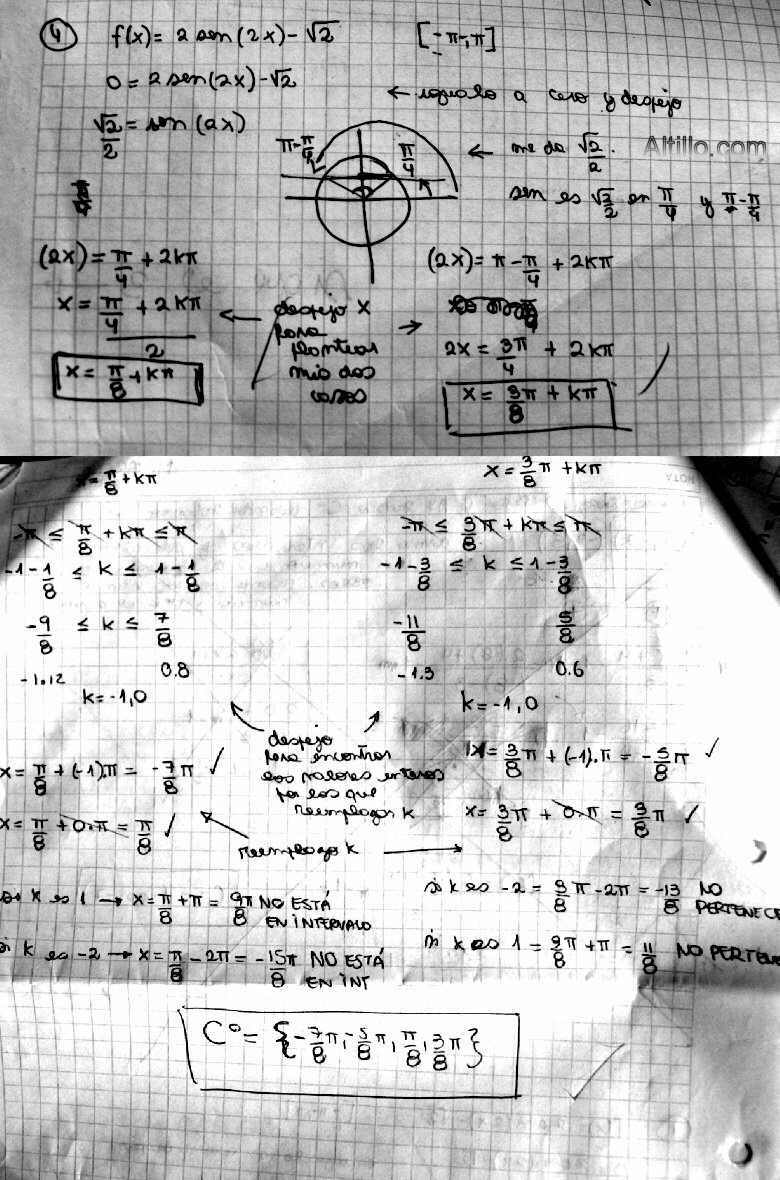 4 f(x)= 2 sen(2x)-√2 [-π-,π]
0=2sen(2x)-√2
← igualo a cero y despejo
√2/2=sen(2x)
π-π/4 π/4 ← me da √2/2. Altillo.com
sen es √2/2 en π/4 y π-π/4
(2x)=π/4+2kπ (2x)=π-π/4+2kπ
x=π/4+2kπ ← despejo x →
2 para
plantear
mis dos
casos
2x=3π/4+2kπ
x=π/8+kπ x=3π/8+kπ
x=π/8+kπ x=3/8π+kπ
-π≤π/8+kπ≤π -π≤3π/8+kπ≤π
-1-1/8≤k≤1-1/8 -1-3/8≤k≤1-3/8
-9/8≤k≤7/8 -11/8 5/8
-1.12 0.8 -1.3 0.6
k=-1,0 k=-1,0
despejo
para encontrar
los valores enteros
por los que
reemplazar k
x=π/8+(-1).π=-7/8π ✓ x=3/8π+(-1).π=-5/8π ✓
x=π/8+0.π=π/8 ✓ x=3/8π+0.π=3/8π ✓
reemplazo k →
k es 1→x=π/8+π=9π/8 NO ESTÁ
EN INTERVALO
si k es -2=3/8π-2π=-13/8 NO
PERTENECE
k es -2→x=π/8-2π=-15π/8 NO ESTÁ
EN INT
si k es 1=3/8π+π=11/8 NO PERTENE
C⁰={-7/8π,-5/8π,π/8,3/8π}